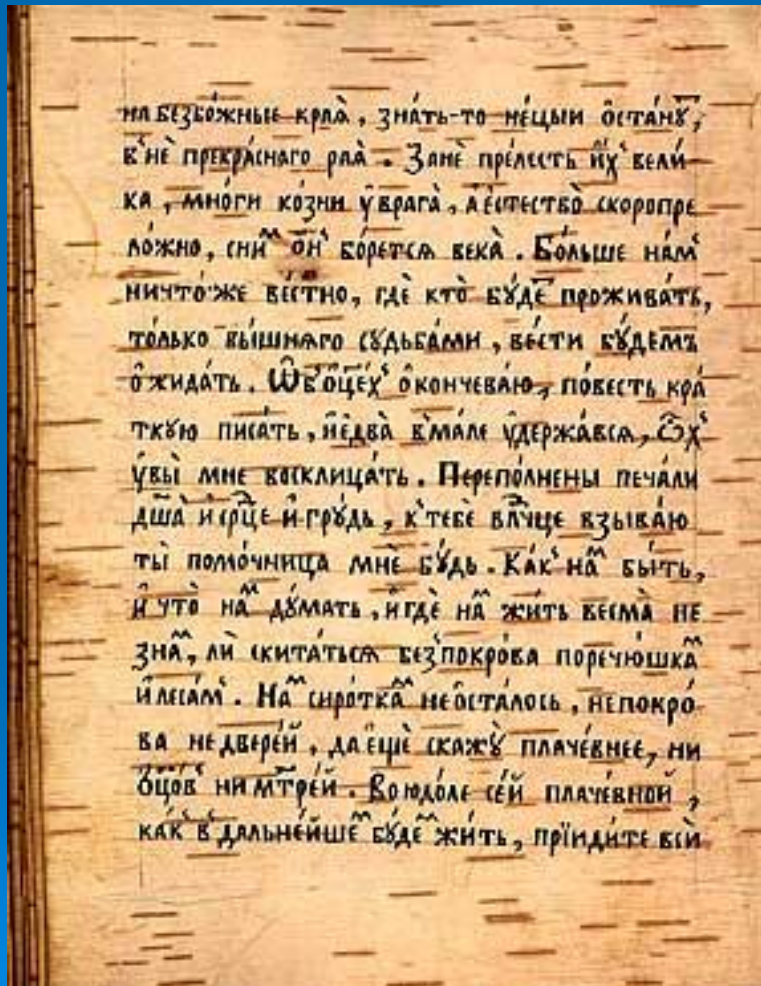 на безбо́жные края̀, зна́ть-то не́цыи ѻ҆ста́нꙋ̃,
в̾ нѐ прекра́снаго рая̀. Занѐ пре́лесть и҆́х̾ вели-
ка, мно́ги ко́зни ᲂу҆ врага̀, а҆ е҆стество̀ скоропре
ло́жно, сниᷟ ѻ҆́н̾ бо́рется века̀. Бо́льше на́м̾
ничто́же ве́стно, гдѐ кто̀ бꙋ́деᷮ прожива́ть,
то́лько вы́шняго сꙋдьба́ми, ве́сти бꙋ́демъ
ѻ҆жида́ть. Ѡ҆б̾ ѻ҆ц҃е́х̾ ѻ҆кончева́ю, по́весть кра́
ткую писа́ть, и҆ е҆два̀ в̾ мале ᲂу҆держа́вся, ѽх̾
ᲂу҆вы̀ мне восклица́ть. Перепо́лнены печа́ли
дш҃а̀ и҆ ср҃це и҆ грꙋ́дь, к̾ тебѐ влⷣчце взыва́ю
ты̀ помо́чница мнѐ бꙋ́дь. Ка́к̾ наᷟ бы́ть,
и҆ что̀ наᷟ дꙋ́мать, и҆ гдѐ наᷟ жи́ть весма̀ не
знаᷟ, лѝ скита́ться без̾ покро́ва поречю́шкаᷟ
и҆ леса́м̾. Наᷟ сиро́ткаᷟ не ѻ҆ста́лось, не покро́
ва не двере́й, да е҆щѐ скажꙋ̀ плаче́внее, ни
ѻ҆ц҃о́в̾ ни мт҃ре́й. Во юдо́ле се́й плаче́вной,
ка́к̾ в̾ дальне́йшеᷟ бꙋ́деᷟ жи́ть, прїиди́те всѝ